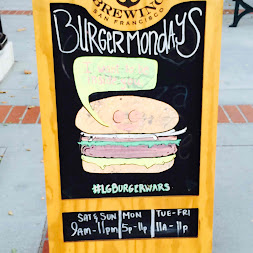 BREWING
SAN FRANCISCO
BURGERMONDAYS
#LGBURGERWARS
SAT & SUN
9am - 11pm
MON
5p - 11p
TUE - FRI
11A - 11p